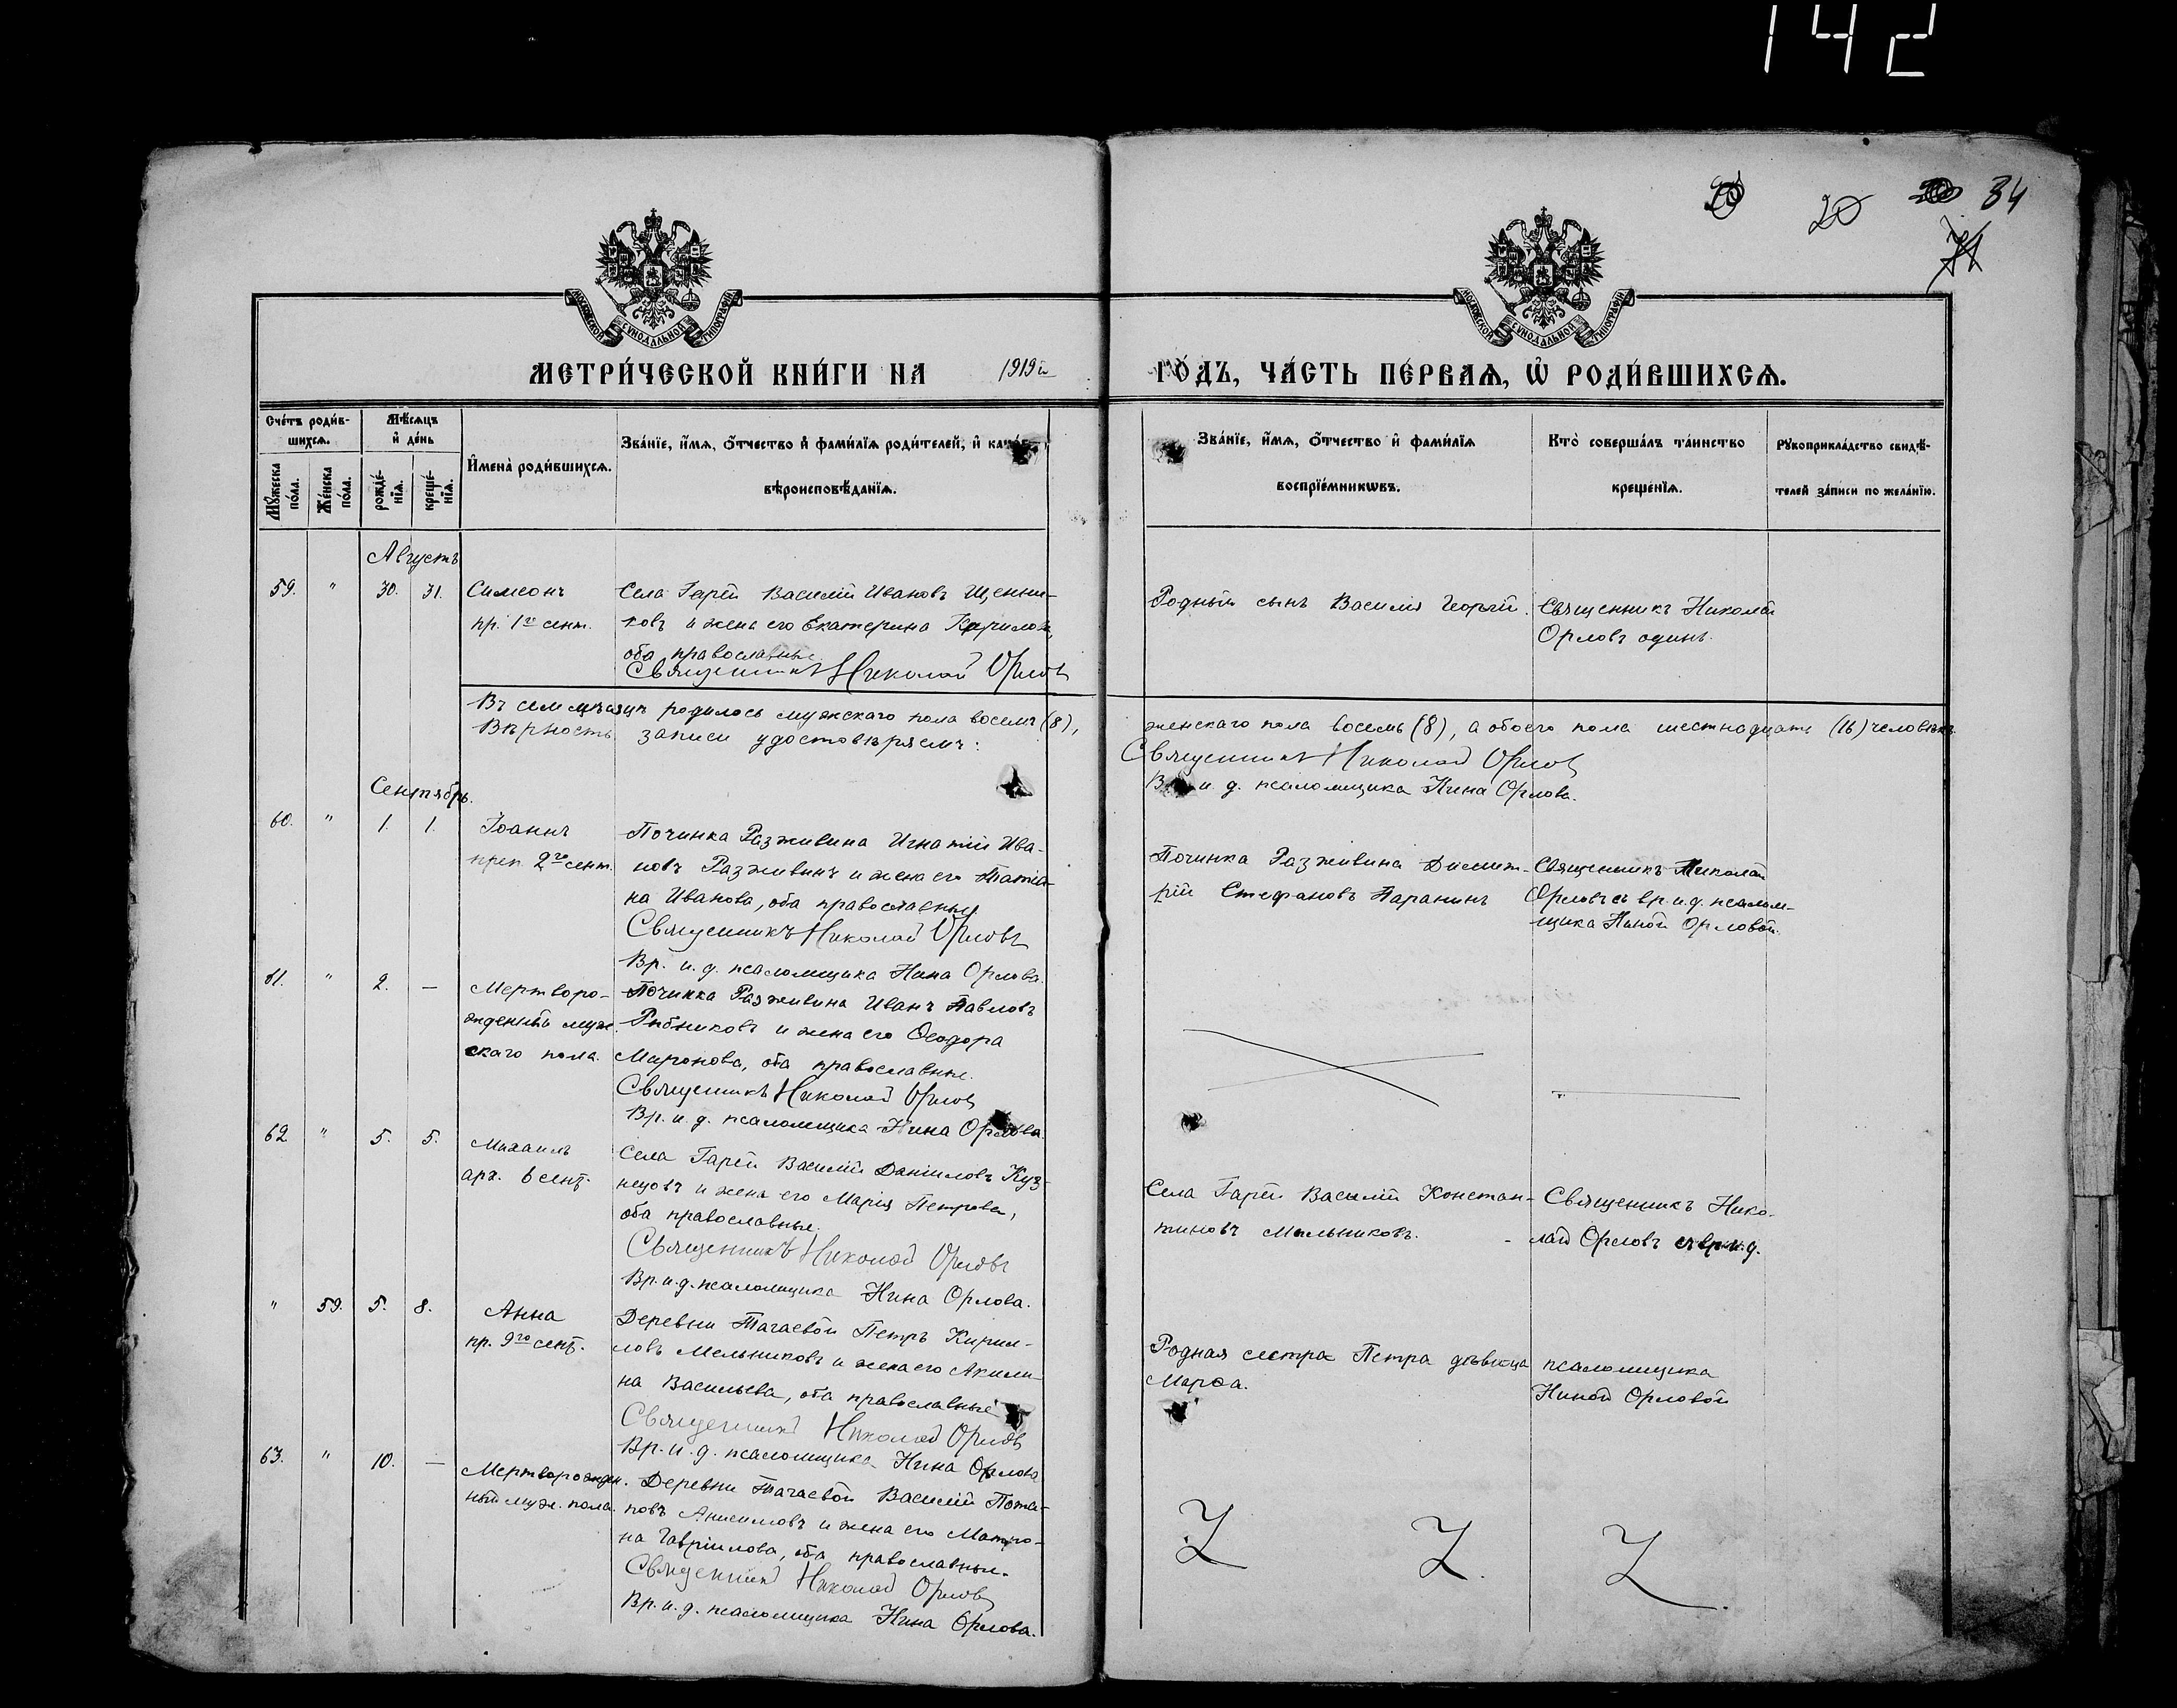 142
20
34
МОСКОВСКОЙ СѴНОДАЛЬНОЙ ТИПОГРАФІИ
МОСКОВСКОЙ СѴНОДАЛЬНОЙ ТИПОГРАФІИ
МЕТРИ́ЧЕСКОЙ КНИ́ГИ НА 1919й ГО́ДЪ, ЧА́СТЬ ПЕ́РВАѦ, Ѡ҆ РОДИ́ВШИХСѦ.
Сче́тъ роди́в-
шихсѧ.
Мѣ́сѧцъ
и҆ де́нь
Мꙋ́жеска
по́ла.
Же́нска
по́ла.
рожде́-
нїѧ.
креще́-
нїѧ.
И҆мена̀ роди́вшихсѧ.
Зва́нїе, и҆́мѧ, ѻ҆́тчество и҆ фами́лїѧ роди́телей, и҆
вѣроисповѣ́данїѧ.
Зва́нїе, и҆́мѧ, ѻ҆́тчество и҆ фами́лїѧ
воспрїе́мникѡвъ.
Кто̀ соверша́лъ та́инство
креще́нїѧ.
Рꙋкоприкла́дство свидѣ́-
телей за́писи по жела́нїю.
Августъ
59. " 30. 31. Симеонъ
пр. 1го сент.
Села Гарей Василій Ивановъ Щенни-
ковъ и жена его Екатерина
оба православные
Священникъ Николай Орловъ
Родный сынъ Василія Георгій.
Священникъ Николай
Орловъ одинъ.
Въ семъ мѣсяцѣ родилось мужскаго пола восемь (8), женскаго пола восемь (8), а обоего пола шестнадцать (16) человѣкъ.
Вѣрность записи удостовѣряемъ:
Священникъ Николай Орловъ
и. д. псаломщика Нина Орлова.
Сентябрь.
60. " 1. 1. Іоаннъ
преп. 2го сент.
Починка Разживина Игнатій Ива-
новъ Разживинъ и жена его Татія-
на Иванова, оба православные
Священникъ Николай Орловъ
Вр. и. д. псаломщика Нина Орлова.
Починка Разживина Димит-
рій Стефановъ Паранинъ
Священникъ Николай
Орловъ съ вр. и. д. псалом-
щика Ниной Орловой.
61. " 2. — Мертворо-
жденный муж-
скаго пола.
Починка Разживина Иванъ Павловъ
Рыбниковъ и жена его Ѳеодора
Миронова, оба православные.
Священникъ Николай Орловъ
Вр. и. д. псаломщика Нина Орлова.
62 " 5. 5. Михаилъ
арх. 6 сент.
Села Гарей Василій Даніиловъ Куз-
нецовъ и жена его Марія Петрова,
оба православные.
Священникъ Николай Орловъ
Вр. и. д. псаломщика Нина Орлова.
Села Гарей Василій Констан-
тиновъ Мельниковъ.
Священникъ Нико-
лай Орловъ съ вр. и. д.
" 59. 5. 8. Анна
пр. 9го сент.
Деревни Тагаевой Петръ Кирил-
ловъ Мельниковъ и жена его Акили-
на Васильева, оба православные
Священникъ Николай Орловъ
Вр. и. д. псаломщика Нина Орлова
Родная сестра Петра дѣвица
Марѳа.
псаломщика
Ниной Орловой
63. " 10. — Мертворожден-
ный муж. пола.
Деревни Тагаевой Василій Пота-
повъ Анисимовъ и жена его Матро-
на Гавріилова, оба православные.
Священникъ Николай Орловъ
Вр. и. д. псаломщика Нина Орлова.